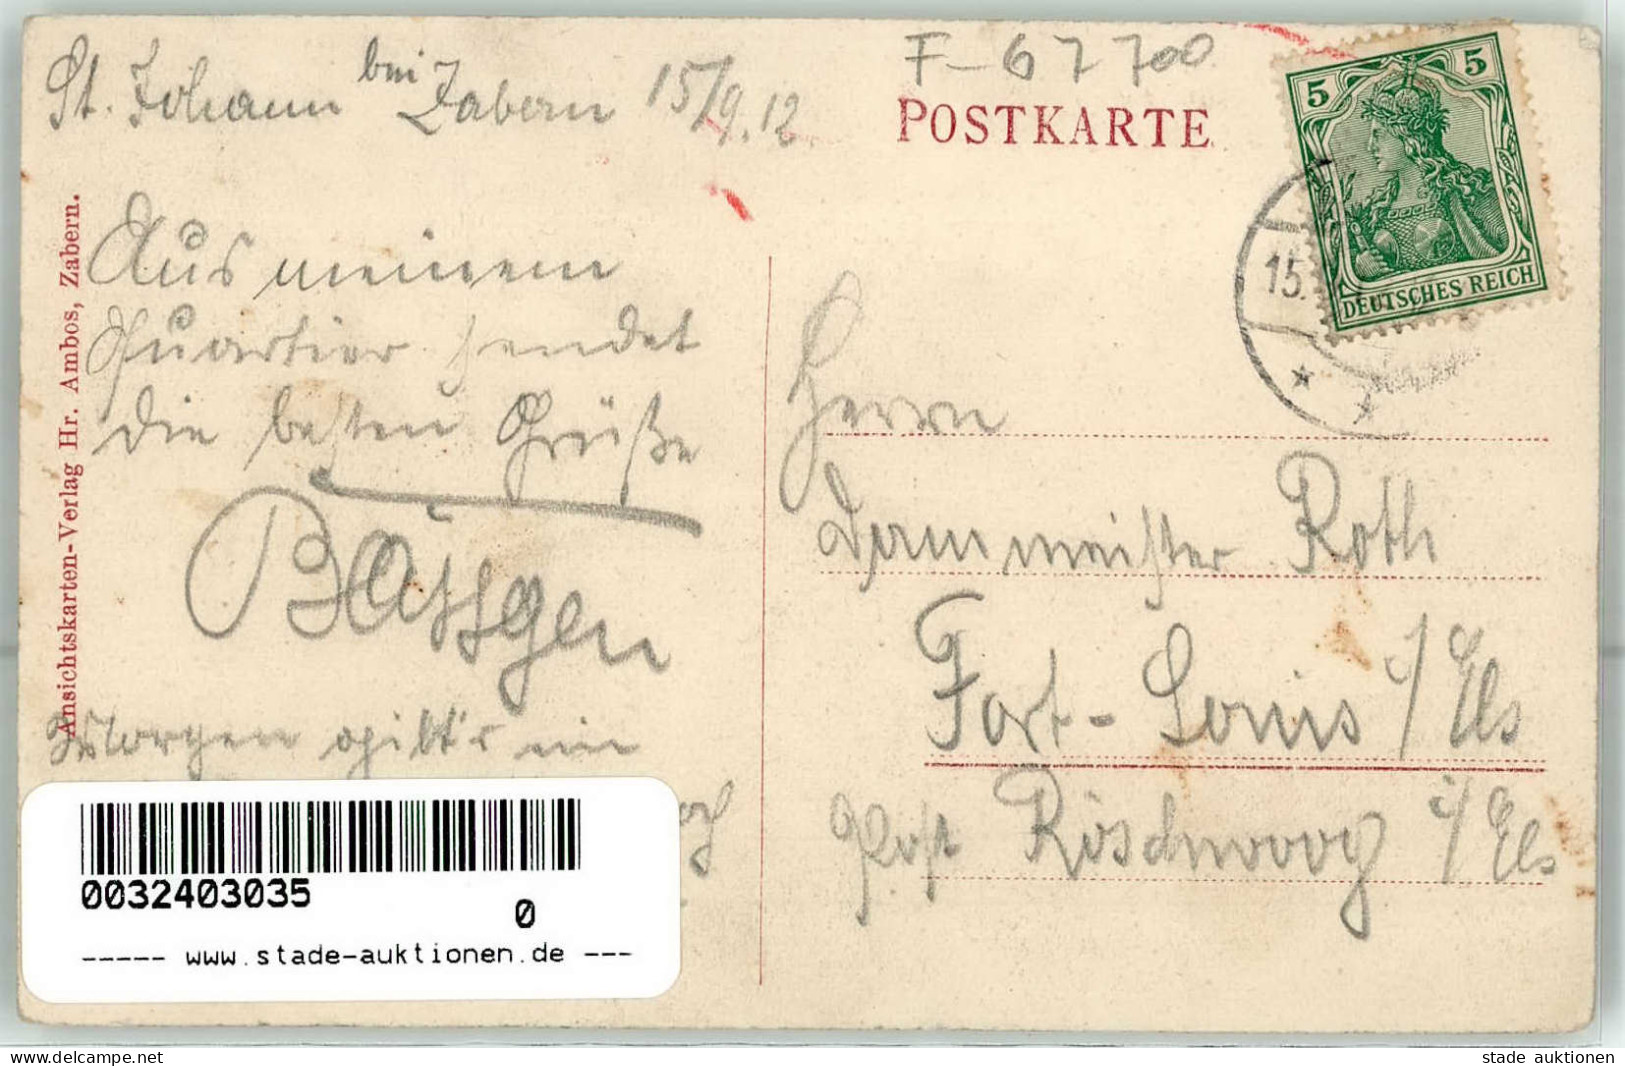 St. Johann bei Zabern 15/9.12
F-67700
POSTKARTE
5 5
DEUTSCHES REICH
15.
Ansichtskarten-Verlag Hr. Ambos, Zabern.
Aus meinem
Quartier sendet
die besten Grüße
Bässgen
Morgen gilt's im
Herrn
Dammmeister Roth
Fort-Louis i/Els
Post Röschwoog i/Els
0032403035
0
----- www.stade-auktionen.de ---
www.delcampe.net
stade auktionen